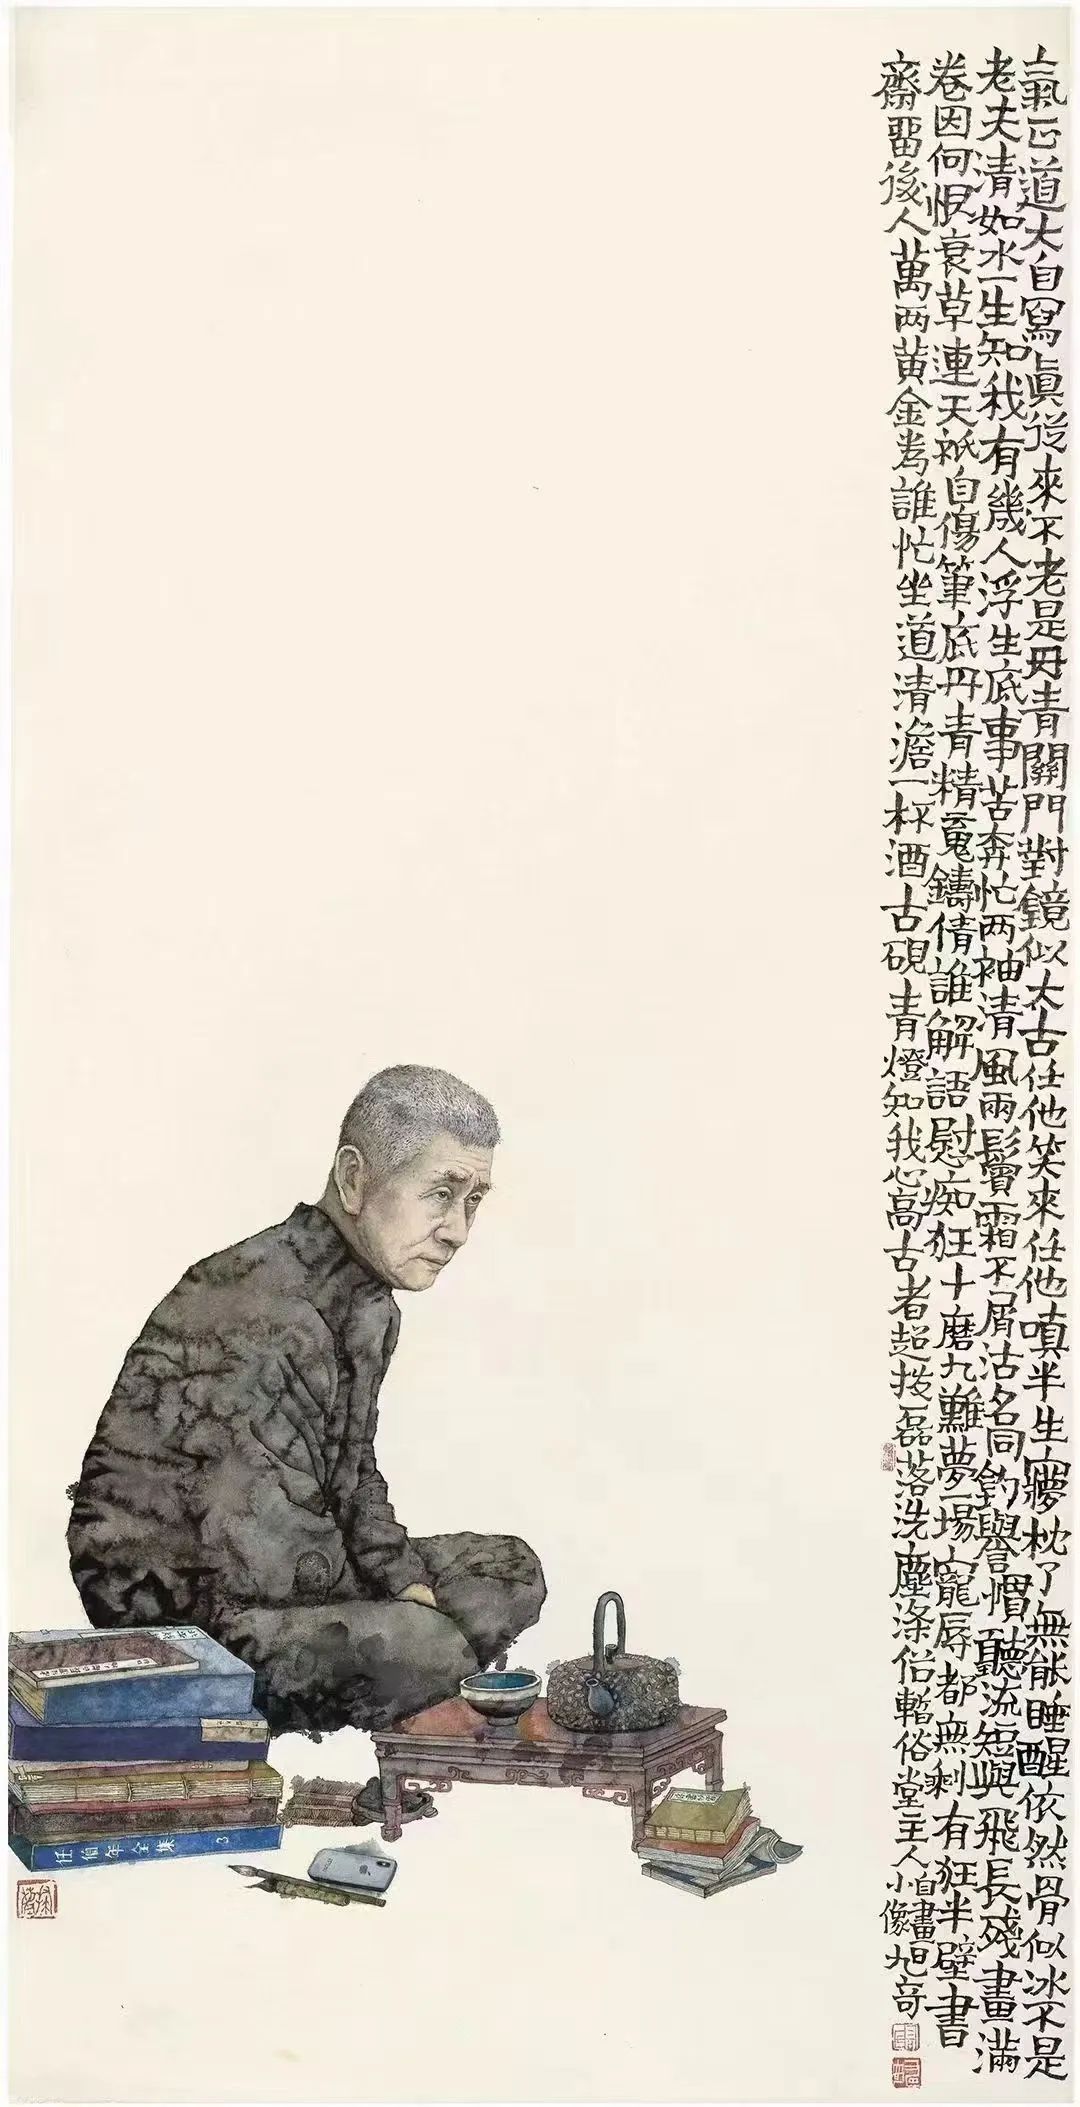 氣正道大自寫真從來不老是丹青關門對鏡似太古任他笑來任他嗔半生寱枕了無能睡醒依然骨似冰不是
老夫清如水一生知我有幾人浮生底事苦奔忙两袖清風兩鬢霜不屑沽名同釣譽慣聽流短與飛長殘畫滿
卷因何恨衰草連天祇自傷筆底丹青精䰟鑄倩誰解語慰痴狂十磨九難夢一場寵辱都無剩有狂半壁書
齋畱後人萬两黄金為誰忙坐道清澹一杯酒古硯青燈知我心高古者超拔磊落洗塵滌俗暫俗堂主人自畫小像旭奇
任伯年全集 3